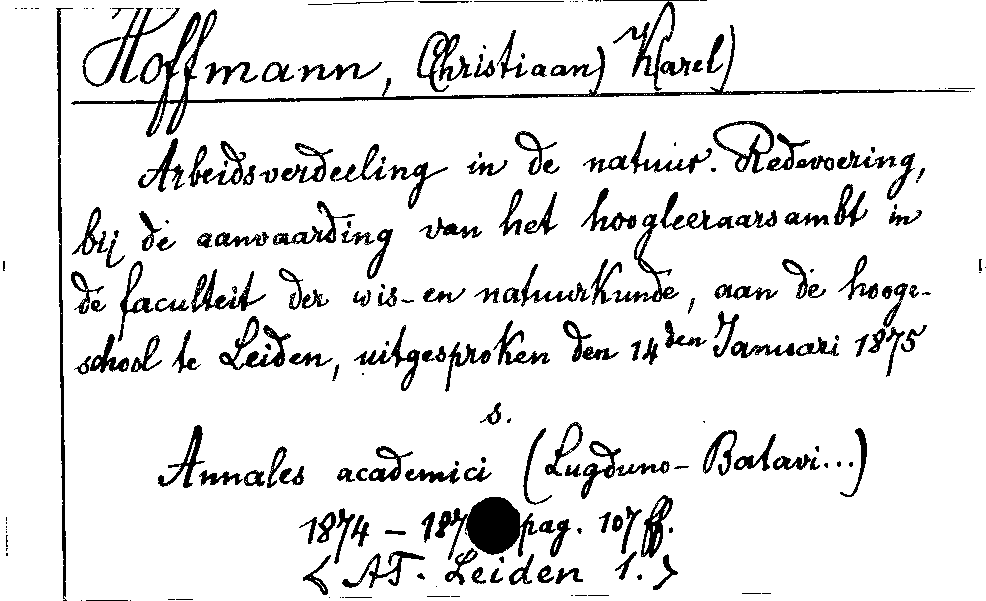 Hoffmann, C(hristiaan) K(arel)
Arbeidsverdeeling in de natuur. Redevoering,
bij de aanvaarding van het hoogleeraarsambt in
de faculteit der wis- en natuurkunde, aan de hooge-
school te Leiden, uitgesproken den 14den Januari 1875
s.
Annales academici (Lugduno-Batavi...)
1874 - 187 pag. 107 ff.
< AT. Leiden 1. >